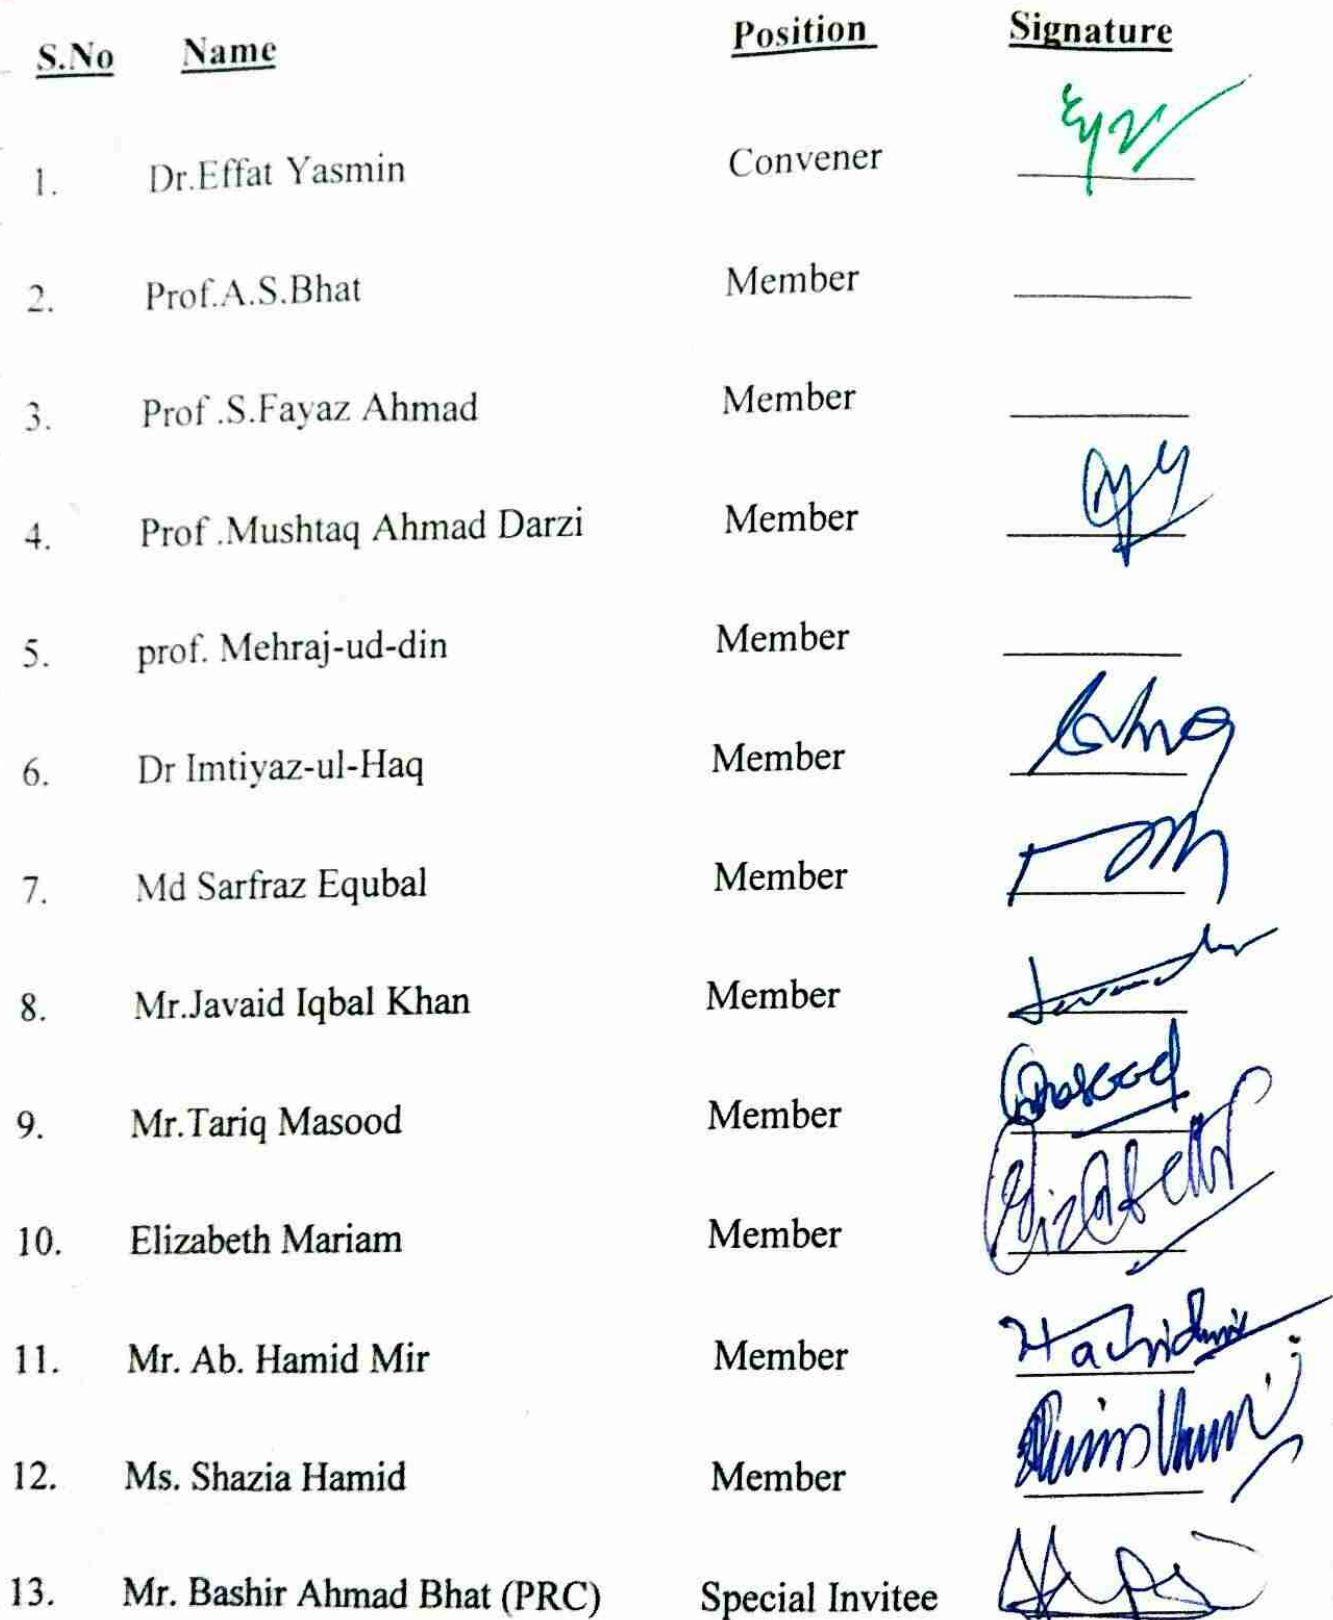 S.No Name Position Signature
1. Dr.Effat Yasmin Convener
2. Prof.A.S.Bhat Member
3. Prof .S.Fayaz Ahmad Member
4. Prof .Mushtaq Ahmad Darzi Member
5. prof. Mehraj-ud-din Member
6. Dr Imtiyaz-ul-Haq Member
7. Md Sarfraz Equbal Member
8. Mr.Javaid Iqbal Khan Member
9. Mr.Tariq Masood Member
10. Elizabeth Mariam Member Elizabeth
11. Mr. Ab. Hamid Mir Member
12. Ms. Shazia Hamid Member
13. Mr. Bashir Ahmad Bhat (PRC) Special Invitee